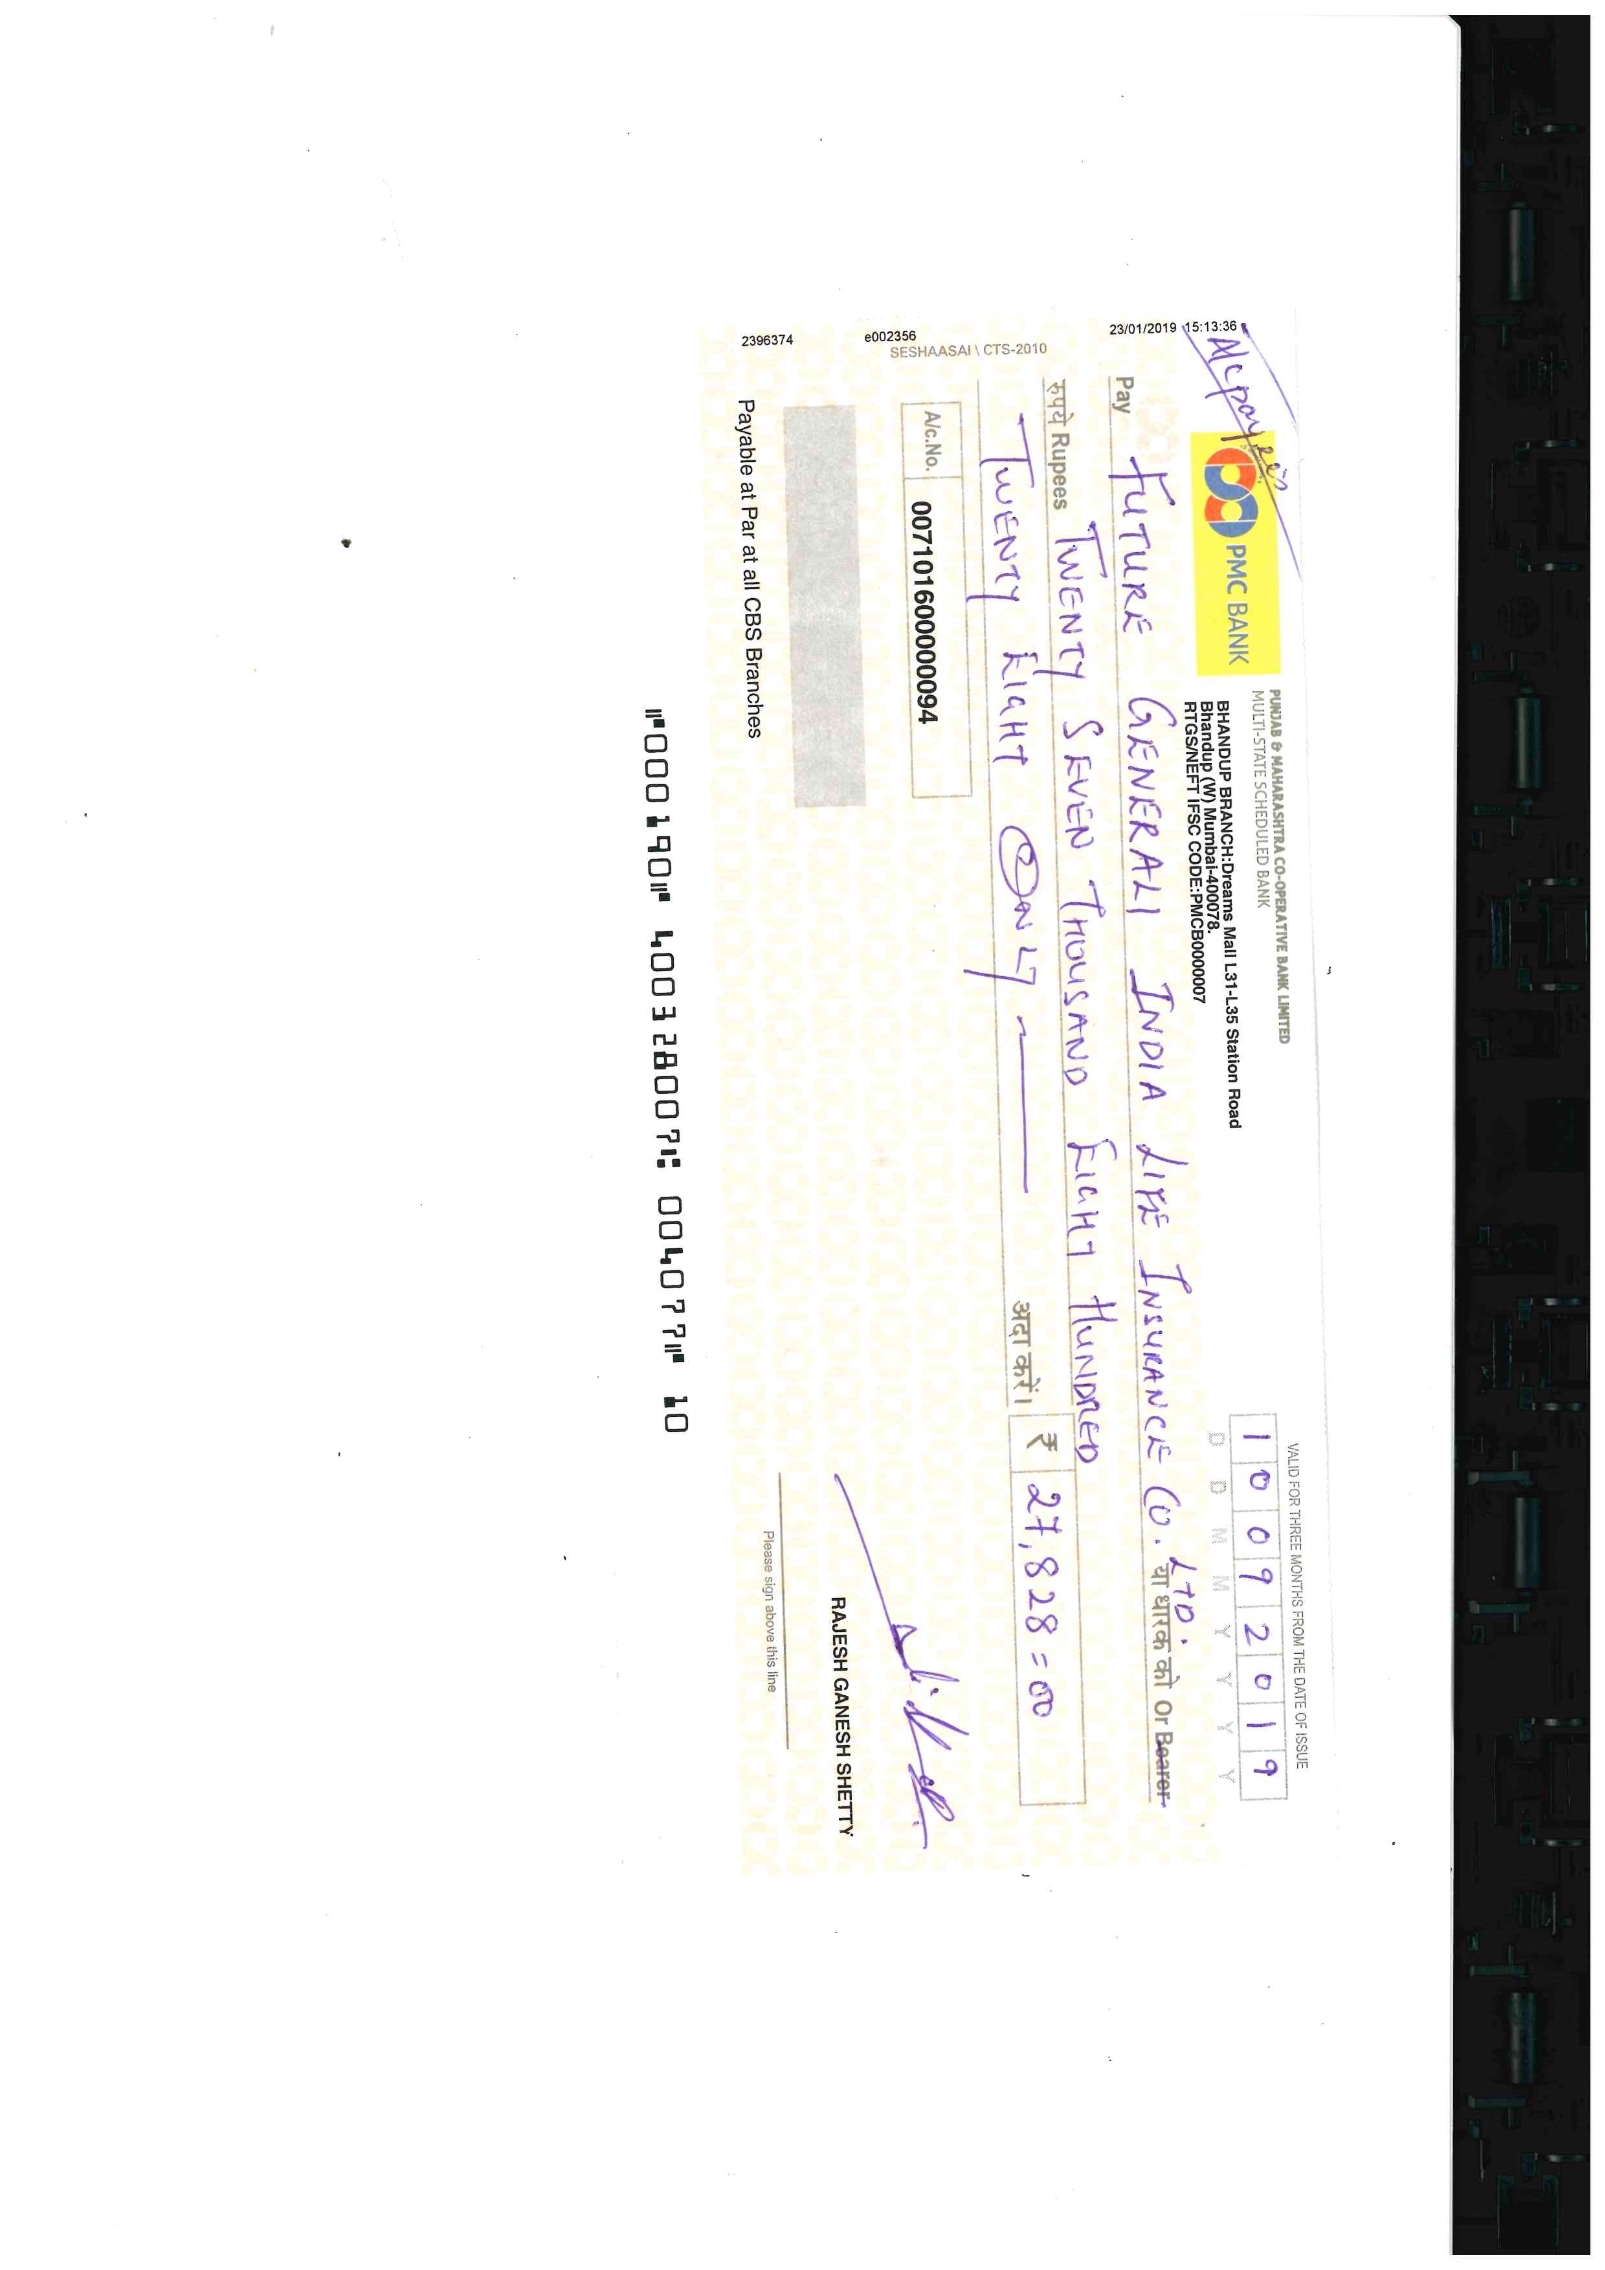 A/c payee
PMC BANK
PUNJAB & MAHARASHTRA CO-OPERATIVE BANK LIMITED
MULTI-STATE SCHEDULED BANK
BHANDUP BRANCH:Dreams Mall L31-L35 Station Road
Bhandup (W) Mumbai-400078.
RTGS/NEFT IFSC CODE:PMCB0000007
VALID FOR THREE MONTHS FROM THE DATE OF ISSUE
1 0 0 9 2 0 1 9
D D M M Y Y Y Y
23/01/2019 15:13:36
Pay FUTURE GENERALI INDIA LIFE INSURANCE CO. LTD. या धारक को Or Bearer
रुपये Rupees TWENTY SEVEN THOUSAND EIGHT HUNDRED
TWENTY EIGHT ONLY अदा करें। ₹ 27,828=00
SESHAASAI \ CTS-2010
e002356
A/c.No. 00710160000094
RAJESH GANESH SHETTY
2396374
Please sign above this line
Payable at Par at all CBS Branches
⑈000190⑈ 400328007⑆ 004077⑈ 10